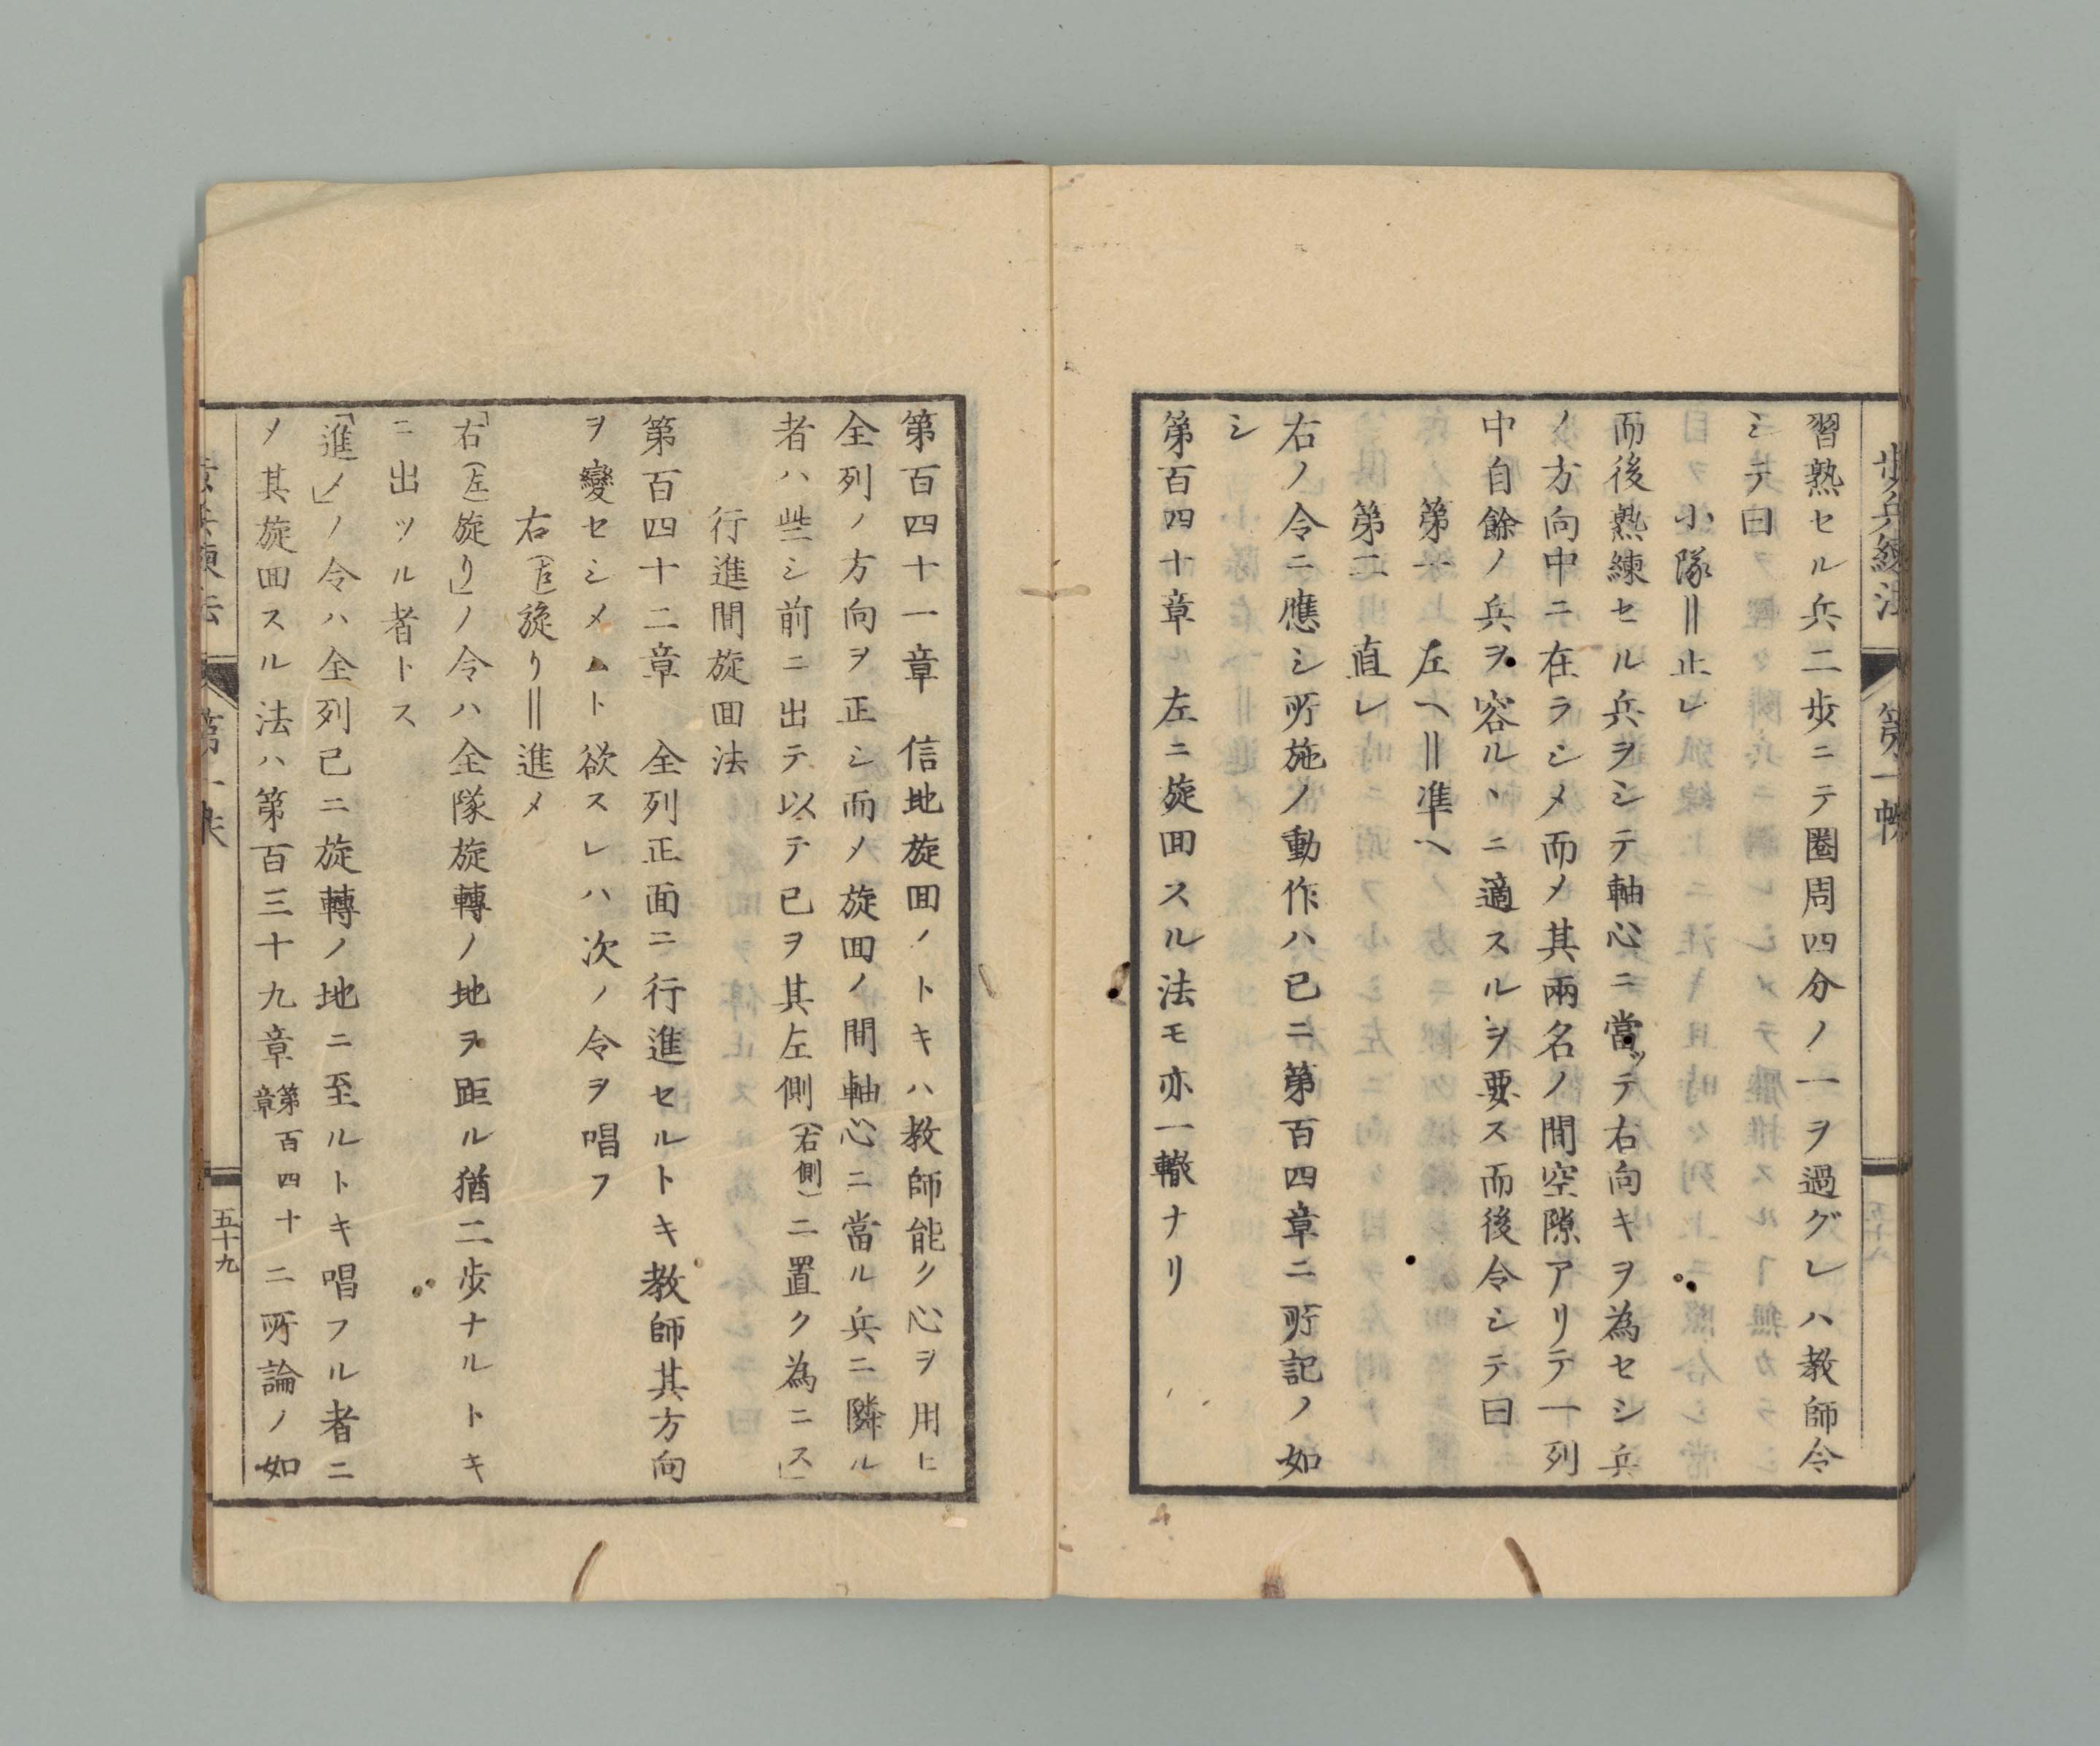 歩兵練法 第一帙
習熟セル兵二歩ニテ圏周四分ノ一ヲ過グレハ教師令
シテ曰
小隊‖止レ
而後熟練セル兵ヲシテ軸心ニ當ッテ右向キヲ為セシ兵
ノ方向中ニ在ラシメ而メ其兩名ノ間空隙アリテ一列
中自餘ノ兵ヲ容ルヽニ適スルヲ要ス而後令シテ曰
第一 左ヘ‖準ヘ
第二 直レ
右ノ令ニ應シ所施ノ動作ハ已ニ第百四章ニ所記ノ如
シ
第百四十章 左ニ旋回スル法モ亦一轍ナリ
第百四十一章 信地旋回ノトキハ教師能ク心ヲ用ヒ
全列ノ方向ヲ正シ而メ旋回ノ間軸心ニ當ル兵ニ隣ル
者ハ些シ前ニ出テ以テ已ヲ其左側(右側)ニ置ク為ニス」
行進間旋回法
第百四十二章 全列正面ニ行進セルトキ教師其方向
ヲ變セシメムト欲スレハ次ノ令ヲ唱フ
右(左)旋り‖進メ
「右(左)旋り」ノ令ハ全隊旋轉ノ地ヲ距ル猶二歩ナルトキ
ニ出ツル者トス
「進メ」ノ令ハ全列已ニ旋轉ノ地ニ至ルトキ唱フル者ニ
メ其旋回スル法ハ第百三十九章第百四十章ニ所論ノ如
五十九